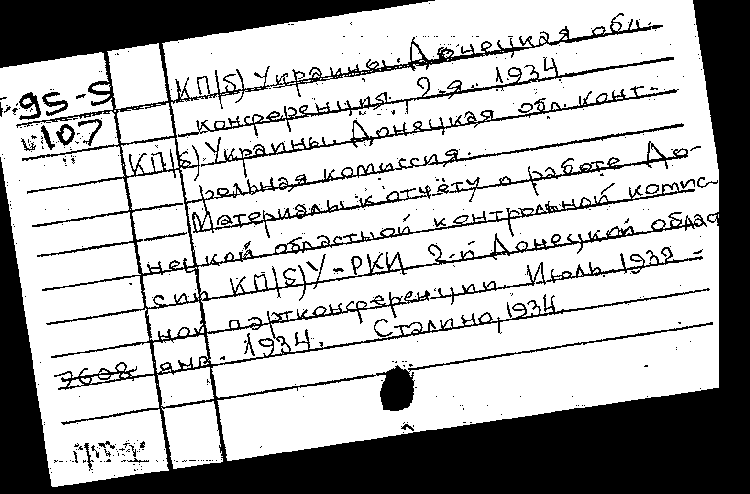 95-5
107
КП(б) Украины. Донецкая обл.
конференция. 2-я. 1934
КП(б) Украины. Донецкая обл. конт-
рольная комиссия.
Материалы к отчёту о работе До-
нецкой областной контрольной комис-
сии КП(б)У-РКИ 2-й Донецкой облас
ной партконференции. Июль 1932 -
янв. 1934. Сталино, 1934.
7608